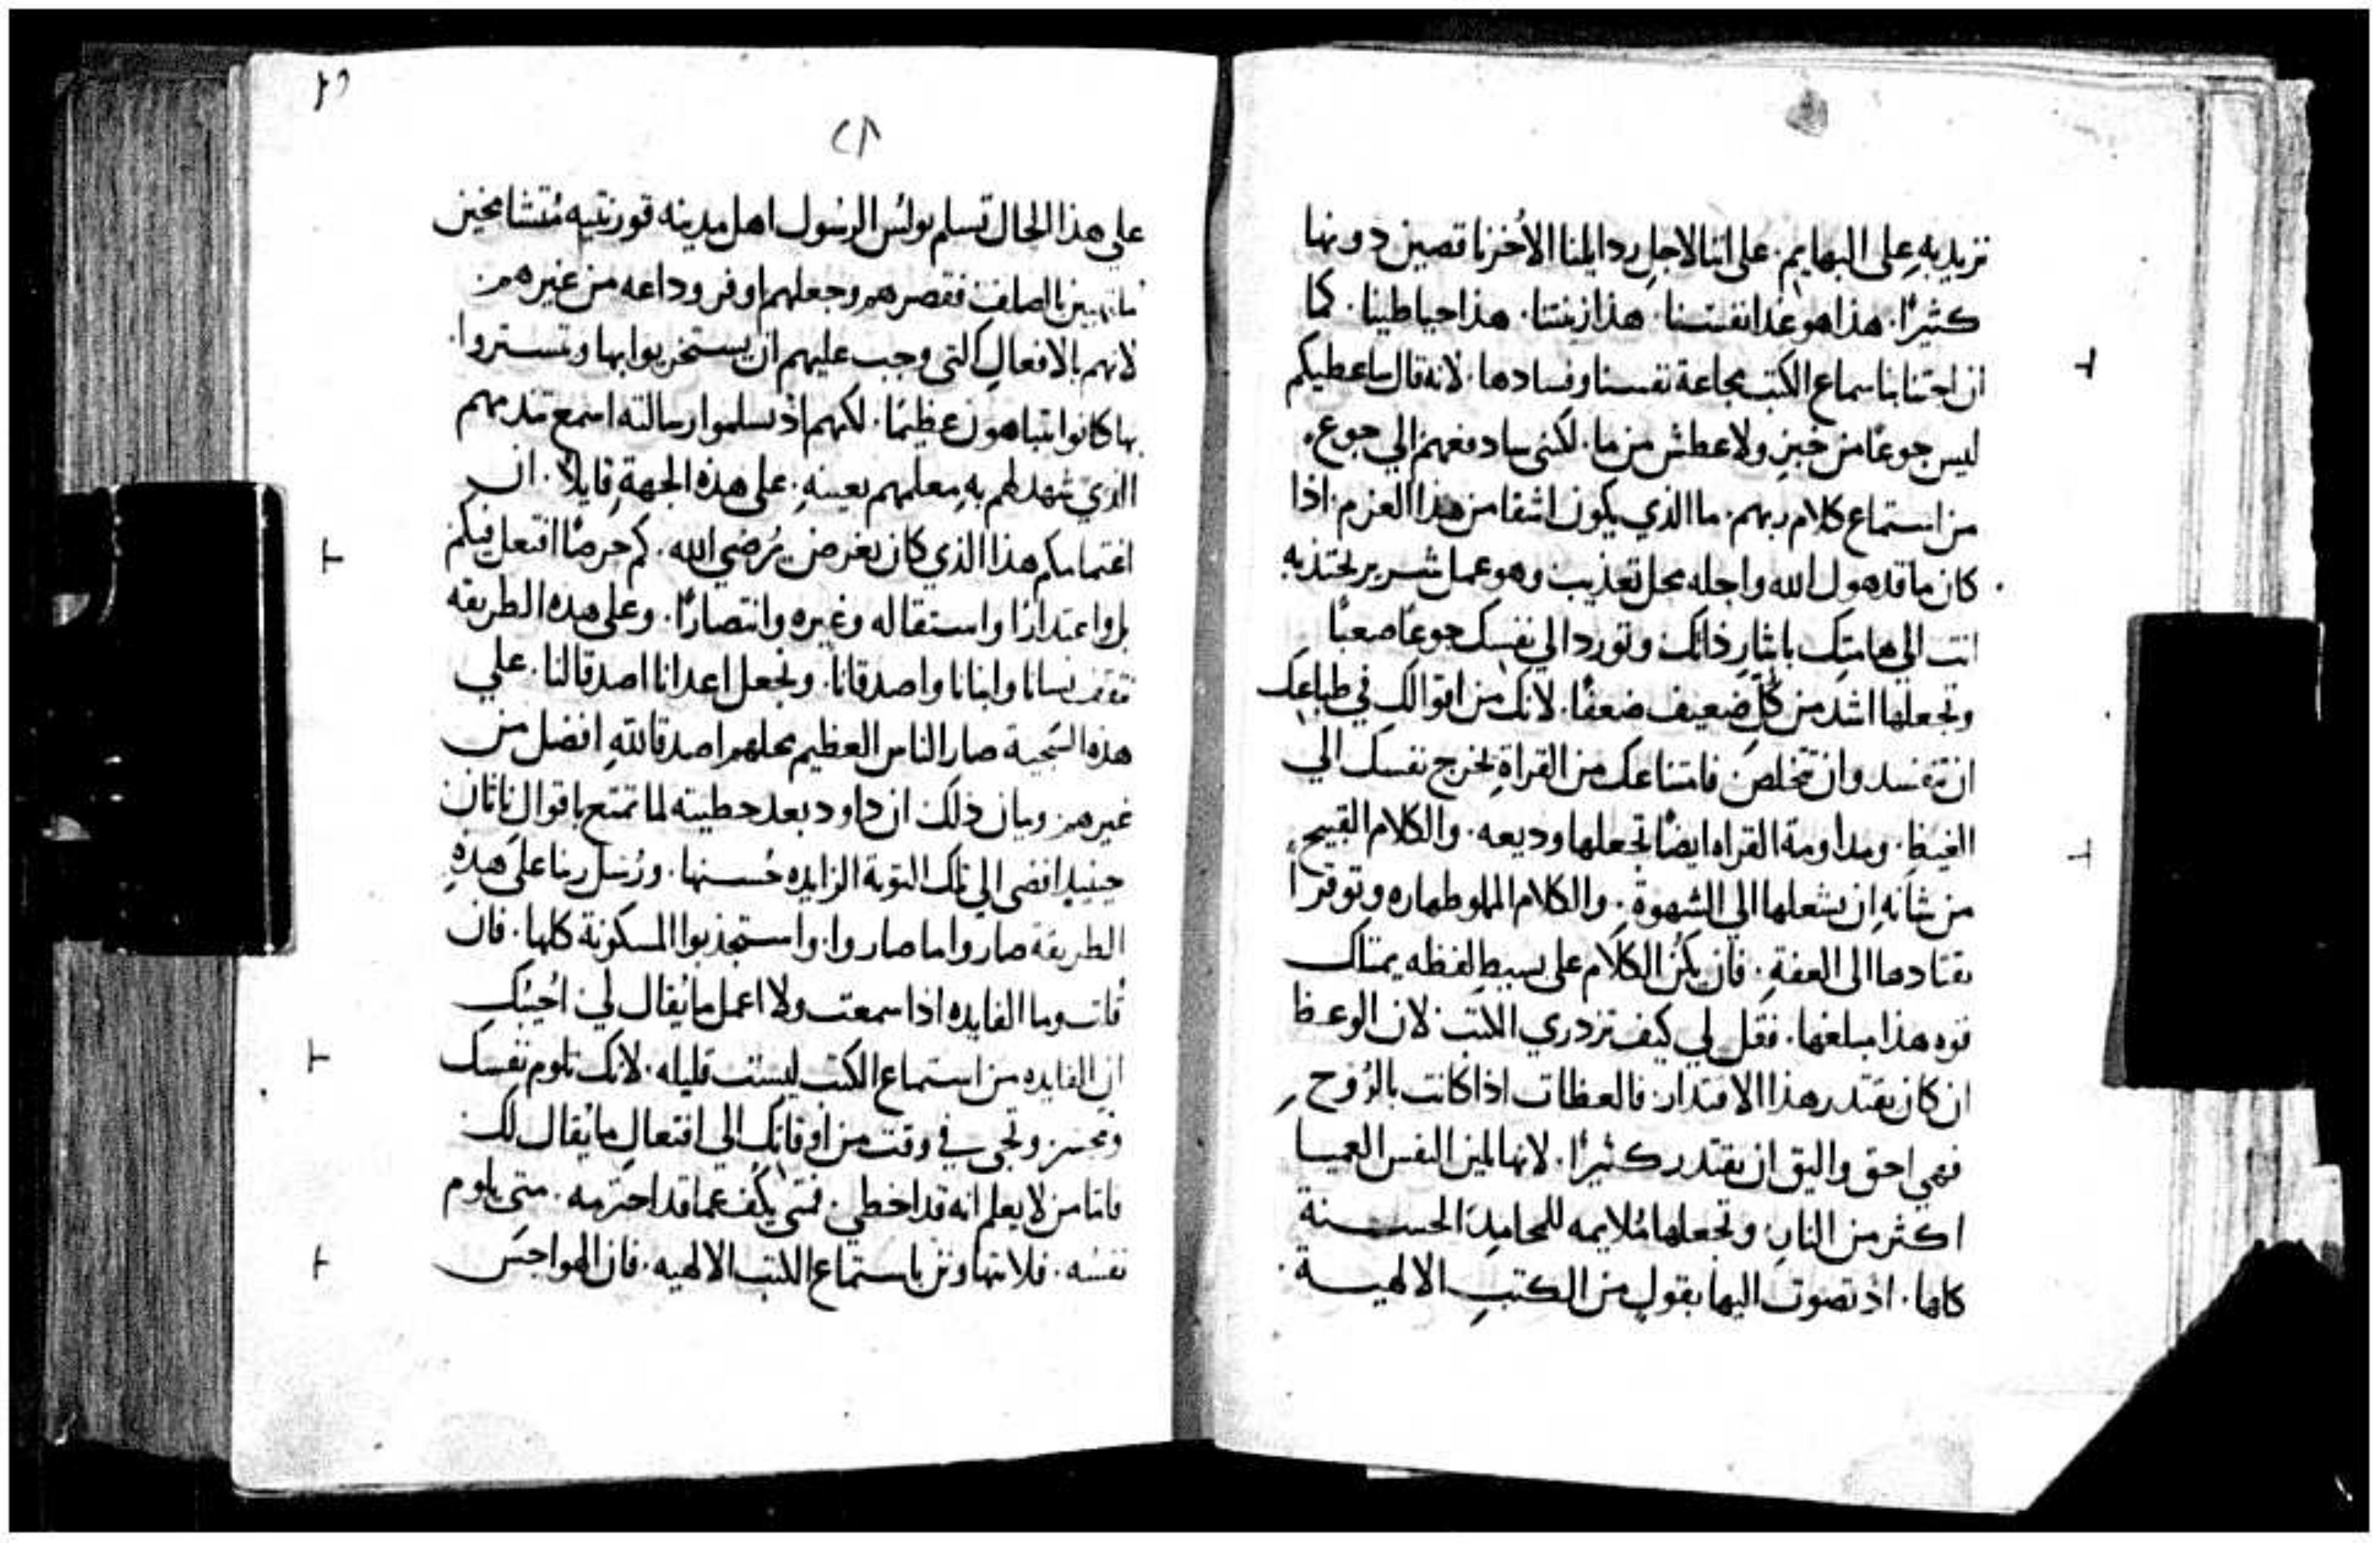 نزيد به على البهايم. على اننا لاجل ردايلنا الاخر ناقصين دونها
كثيرًا. هذا هو غدا نفسنا. هذا زينتنا. هذا حياطينا. كما
ان اجتنابنا سماع الكتب مجاعة نفسنا وفسادها. لانه قال ساعطيكم
ليس جوعًا من خبزٍ ولا عطش من ما. لكنى سادفعهم الي جوع
من استماع كلام ربهم. ما الذي يكون اشقا من هذا العزم. اذا
كان ما قد هول الله واجله محل تعذيب وهو عمل شرير تجتذبه
انت الي هامتك بايثار ذاتك وتورد الي نفسك جوعًا صعبًا
وتجعلها اشد من كل ضعيف ضعفًا. لانك من اقوالك في طباعك
ان تفسد وان تتخلص فامتناعك من القراةِ يخرج نفسك الي
الغيظ. ومداومة القراه ايضًا تجعلها وديعه. والكلام القبيح
من شانه ان يشعلها الي الشهوة. والكلام المملو طهاره وتوقرًا
يقتادها الى العفة. فان يكن الكلام على بسيط لفظه يمتلك
قوه هذا مبلغها. فقل لي كيف تزدري الكتب. لان الوعظ
ان كان يقتدر هذا الاقتدار. فالعظات اذا كانت بالروح
فهي احق واليق ان يقتدر كثيرًا. لانها تلين النفس العميا
اكثر من النار. وتجعلها ملايمه للمحامد الحسنة
كلها. اذ تصوت اليها بقول من الكتب الالهية.
٢٩
٢٨
علي هذا الحال تسلم بولس الرسول اهل مدينه قورنتيه متشامخين
بالصلف فقصرهم وجعلهم اوفر وداعه من غيرهم
لانهم بالافعال التى وجب عليهم ان يستخزيوا بها وتستروا.
بها كانوا يتباهون عظيمًا. لكنهم اذ تسلموا رسالته اسمع تندمهم
الذي شهد لهم به معلمهم بعينه. على هذه الجهة قايلًا. ان
اغتمامكم هذا الذي كان بغرض يرضي الله. كم حرصًا افتعل فيكم
بل واعتدارًا واستقاله وغيره وانتصارًا. وعلى هذه الطريقه
نثقف نسانا وابنانا واصدقانا. ونجعل اعدانا اصدقا لنا. علي
هذه السجية صار الناس العظيم محلهم اصدقا لله افضل من
غيرهم. وبيان ذلك ان داود بعد خطيته لما تمتع باقوال ناثان
حينيد افضى الي تلك التوبة الزايده حسنها. ورسل ربنا على هذه
الطريقة صاروا ما صاروا. واستجذبوا المسكونة كلها. فان
قلت وما الفايده اذا سمعت ولا اعمل ما يقال لي. اجيبك
ان الفايده من استماع الكتب ليست قليله. لانك تلوم نفسك
وتجى في وقت من اوقاتك الي افتعال ما يقال لك
فاما من لا يعلم انه قد اخطي. فمتى يكف عما قد اجترمه. متى يلوم
نفسه. فلا نتهاونن باستماع الكتب الالهيه. فان الهواجس